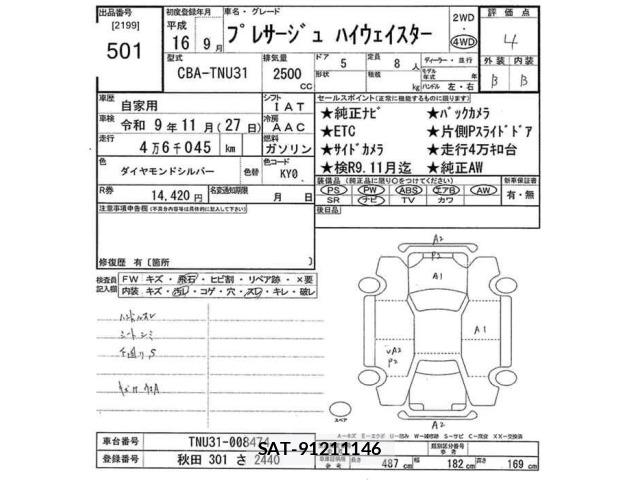 出品番号 初度登録年月 車名・グレード 2WD 評価点
[2199] 平成 プレサージュ ハイウェイスター ・ 4
501 16年 9月 4WD
型式 排気量 ドア 5 定員 8人 ディーラー・並行 外装 内装
CBA-TNU31 2500cc 形状 積載 kg モデル年式 年 B B
ハンドル 左・右
車歴 自家用 シフト IAT セールスポイント(正常に機能するものに限ります)
車検 令和 9年 11月 (27日) 冷房 AAC ★純正ナビ ★バックカメラ
走行 4万6千045 km 燃料 ガソリン ★ETC ★片側Pスライドドア
★サイドカメラ ★走行4万キロ台
★検R9.11月迄 ★純正AW
色 ダイヤモンドシルバー 色替 色コード KY0
装備品(純正品に限り○をつけてください) 新車保証書
R券 14,420円 名変通知期限 月 日 PS PW ABS エアB AW 有・無
SR ナビ TV カワ
注意事項申告欄 後日品
修復歴 有[箇所 ]
検査員記入欄 FW キズ・飛石・ヒビ割・リペア跡・×要
内装 キズ・汚レ・コゲ・穴・スレ・キレ・破レ
ハンドルスレ
シートシミ
A2
P2
A1
A1
UA2
P2
A2
スペア
車台番号 TNU31-008474
登録番号 秋田 301 さ 2440
SAT-91211146
長さ 487cm 幅 182cm 高さ 169cm